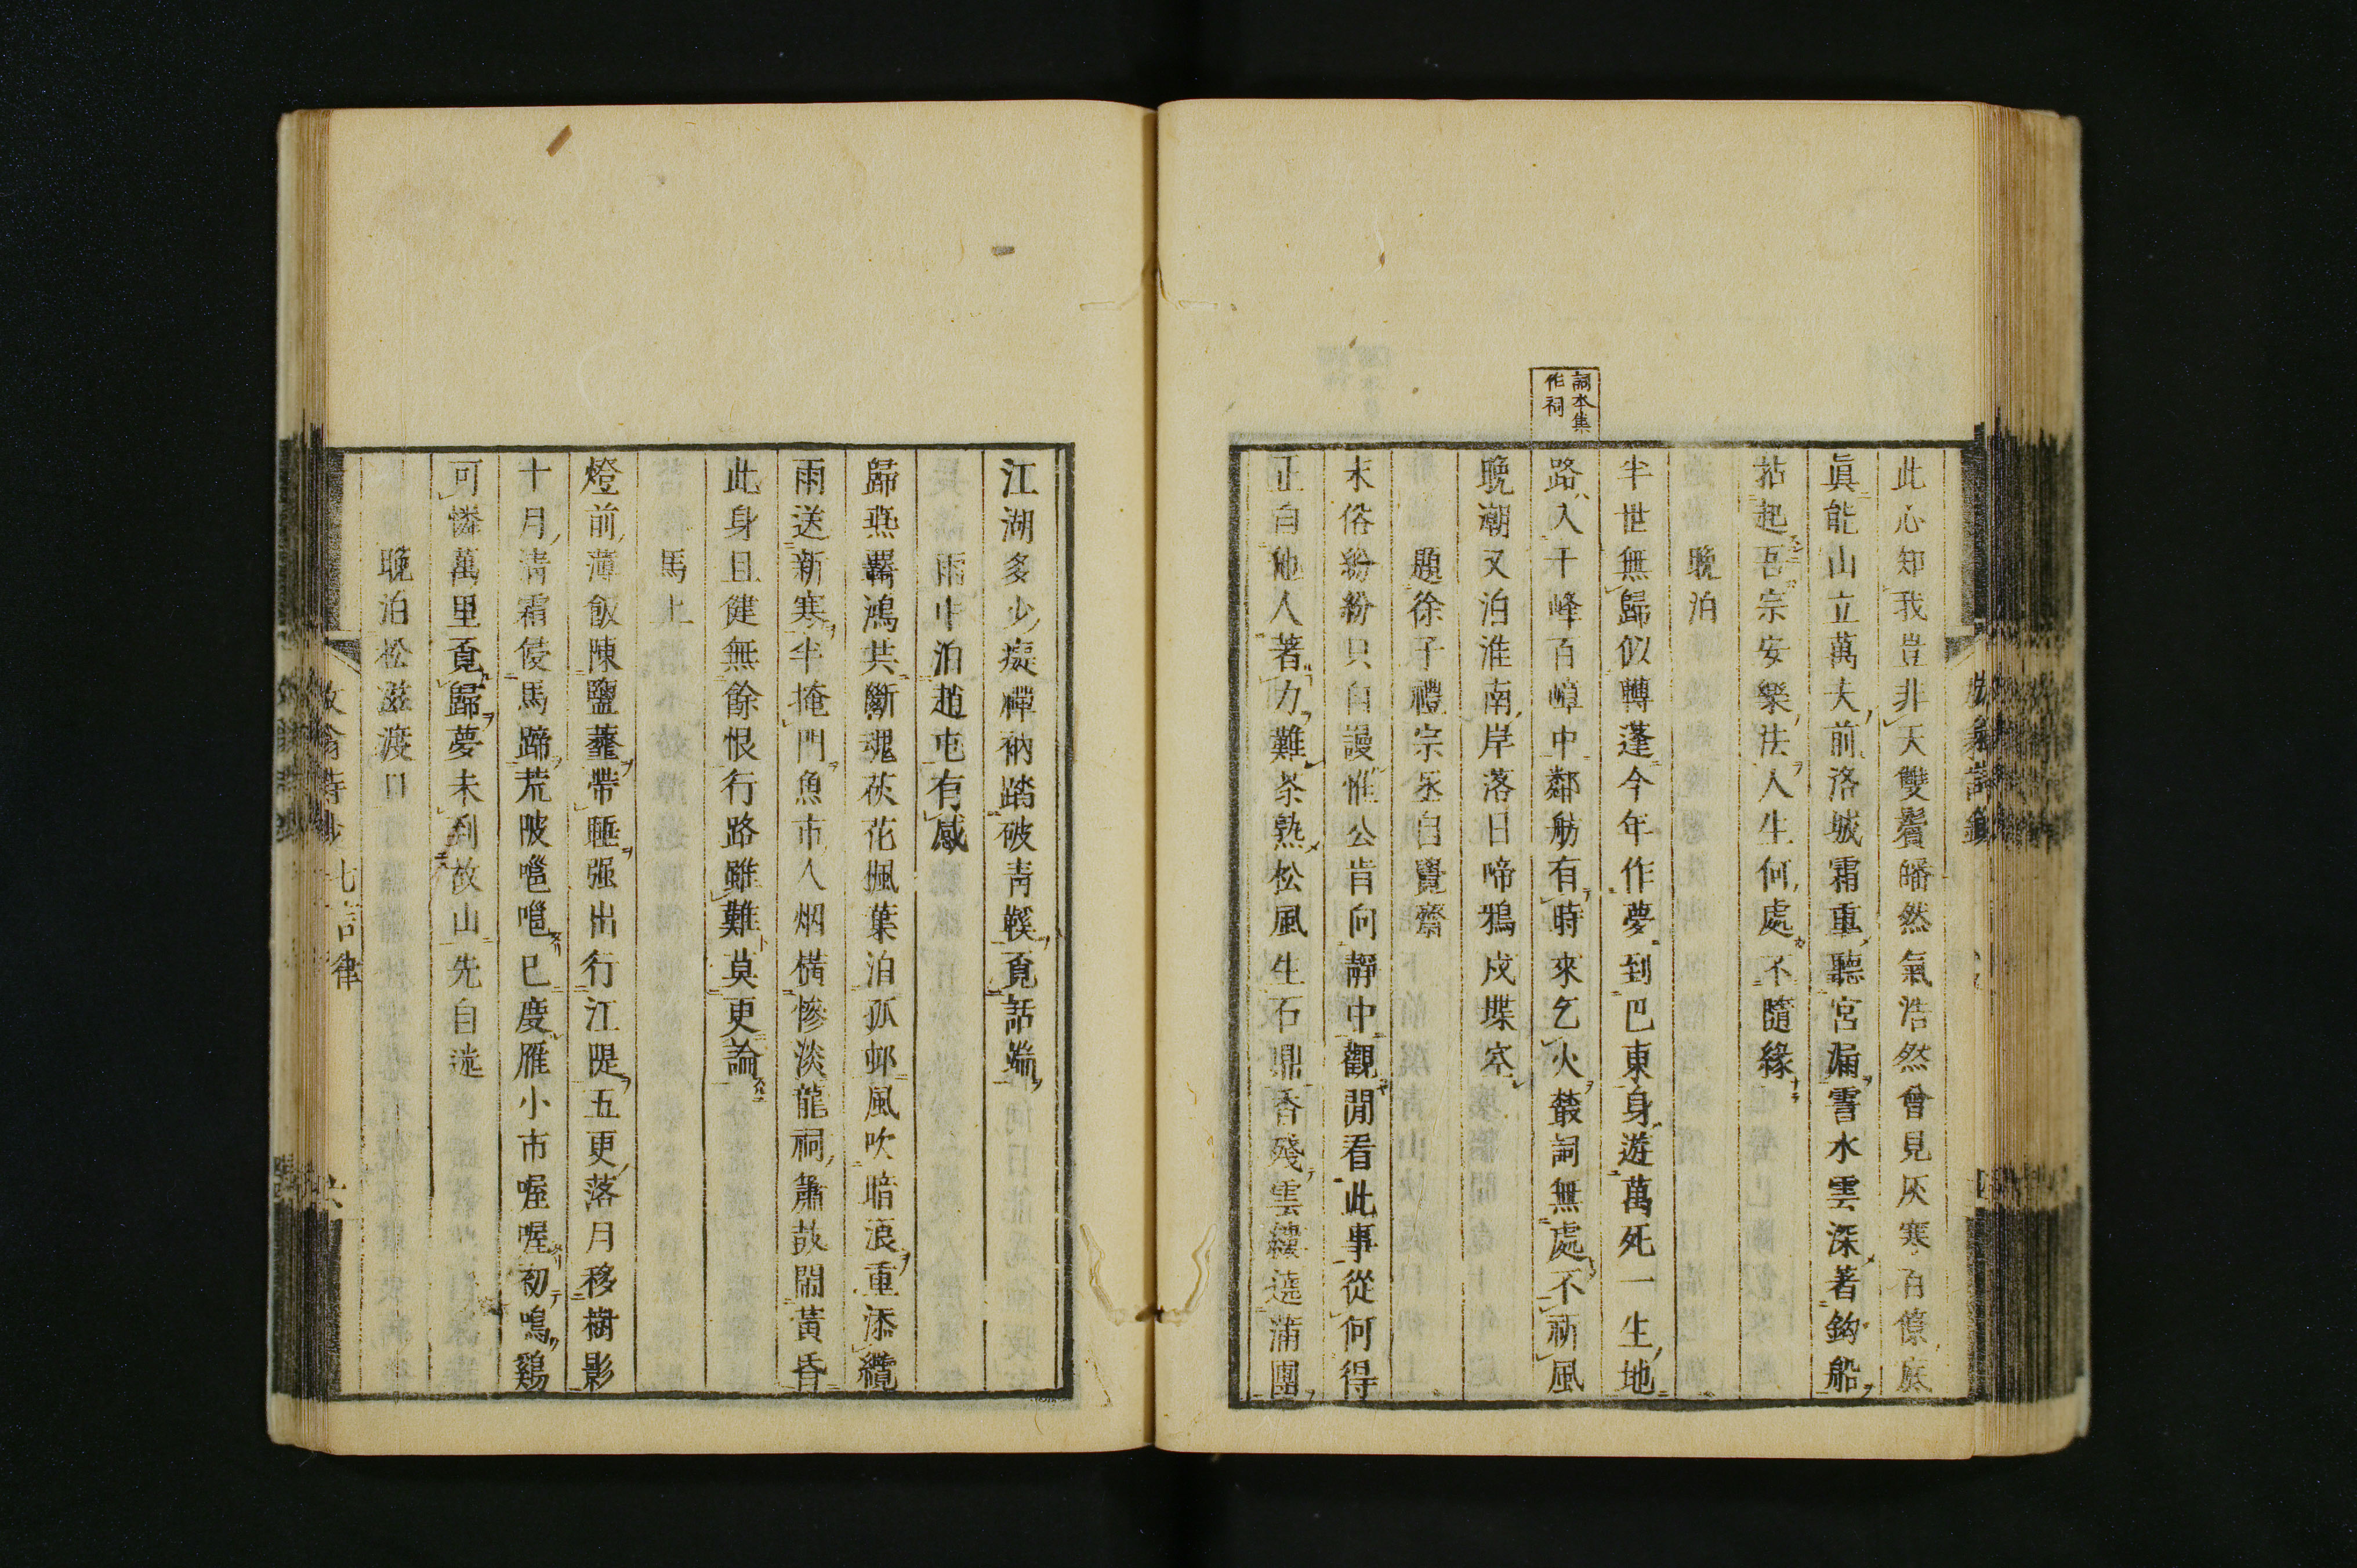 此心知我豈非天雙鬢皤然氣浩然曾見灰寒百僚底
眞能山立萬夫前洛城霜重聽宮漏霅水雲深著釣船
拈起吾宗安樂法人生何處不隨緣
晚泊
半世無歸似轉蓬今年作夢到巴東身遊萬死一生地
路入千峰百嶂中鄰舫有時來乞火叢詞無處不祈風
晚潮又泊淮南岸落日啼鴉戍堞空
詞本集
作祠
題徐子禮宗丞自覺齋
末俗紛紛只自謾惟公肯向靜中觀閒看此事從何得
正自他人著力難茶熟松風生石鼎香殘雲縷遶蒲團
江湖多少癡禪衲踏破青鞵覓話端
雨中泊趙屯有感
歸燕羈鴻共斷魂荻花楓葉泊孤邨風吹暗浪重添纜
雨送新寒半掩門魚市人烟橫慘淡龍祠簫鼓鬧黃昏
此身且健無餘恨行路雖難莫更論
馬上
燈前薄飯陳鹽虀帶睡强出行江隄五更落月移樹影
十月清霜侵馬蹄荒陂嗈嗈已度雁小市喔喔初鳴鷄
可憐萬里覓歸夢未到故山先自迷
晚泊松滋渡口
放翁詩鈔 七言律 六